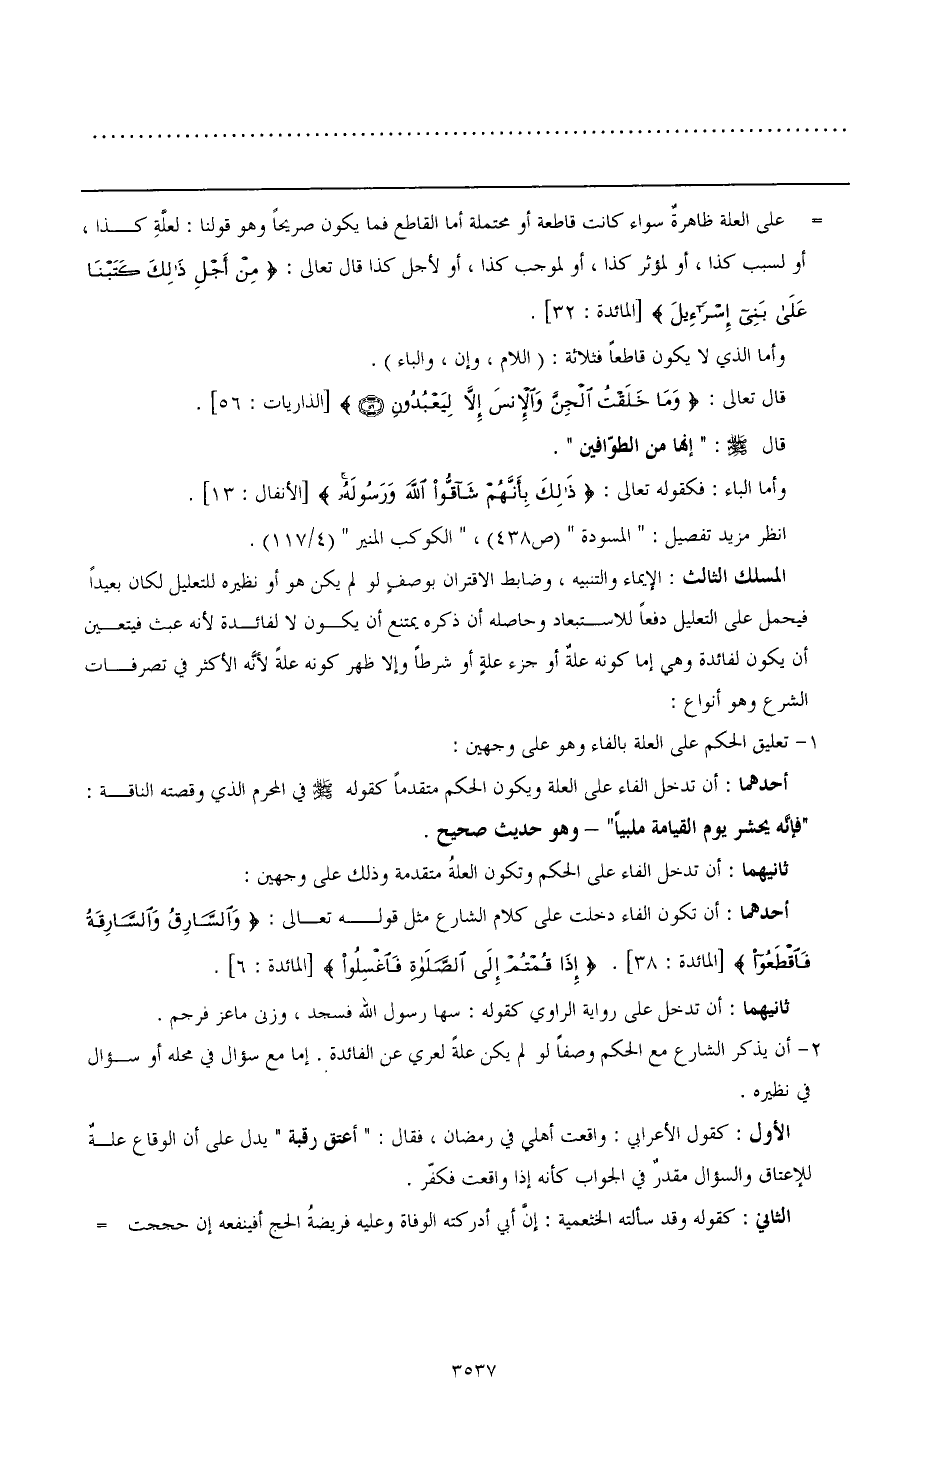 = على العلة ظاهرةٌ سواء كانت قاطعة أو محتملة أما القاطع فما يكون صريحاً وهو قولنا : لعلَّةِ كـــذا ،
أو لسبب كذا ، أو لمؤثر كذا ، أو لموجب كذا ، أو لأجل كذا قال تعالى : ﴿ مِنْ أَجْلِ ذَٰلِكَ كَتَبْنَا
عَلَىٰ بَنِىٓ إِسْرَٰٓءِيلَ ﴾ [المائدة : ٣٢] .
وأما الذي لا يكون قاطعاً فثلاثة : ( اللام ، وإن ، والباء ) .
قال تعالى : ﴿ وَمَا خَلَقْتُ ٱلْجِنَّ وَٱلْإِنسَ إِلَّا لِيَعْبُدُونِ ۝٥٦ ﴾ [الذاريات : ٥٦] .
قال ﷺ : " إنها من الطوّافين " .
وأما الباء : فكقوله تعالى : ﴿ ذَٰلِكَ بِأَنَّهُمْ شَآقُّوا۟ ٱللَّهَ وَرَسُولَهُۥ ۚ ﴾ [الأنفال : ١٣] .
انظر مزيد تفصيل : " المسودة " (ص٤٣٨) ، " الكوكب المنير " (١١٧/٤) .
المسلك الثالث : الإيماء والتنبيه ، وضابط الاقتران بوصفٍ لو لم يكن هو أو نظيره للتعليل لكان بعيداً
فيحمل على التعليل دفعاً للاســتبعاد وحاصله أن ذكره يمتنع أن يكــون لا لفائــدة لأنه عبث فيتعــين
أن يكون لفائدة وهي إما كونه علةً أو جزء علةٍ أو شرطاً وإلا ظهر كونه علةً لأنَّه الأكثر في تصرفــات
الشرع وهو أنواع :
١- تعليق الحكم على العلة بالفاء وهو على وجهين :
أحدهما : أن تدخل الفاء على العلة ويكون الحكم متقدماً كقوله ﷺ في المحرم الذي وقصته الناقــة :
"فإنَّه يحشر يوم القيامة ملبياً" – وهو حديث صحيح .
ثانيهما : أن تدخل الفاء على الحكم وتكون العلةُ متقدمة وذلك على وجهين :
أحدهما : أن تكون الفاء دخلت على كلام الشارع مثل قولــــه تعـــالى : ﴿ وَٱلسَّارِقُ وَٱلسَّارِقَةُ
فَٱقْطَعُوٓا۟ ﴾ [المائدة : ٣٨] . ﴿ إِذَا قُمْتُمْ إِلَى ٱلصَّلَوٰةِ فَٱغْسِلُوا۟ ﴾ [المائدة : ٦] .
ثانيهما : أن تدخل على رواية الراوي كقوله : سها رسول الله فسجد ، وزنى ماعز فرجم .
٢- أن يذكر الشارع مع الحكم وصفاً لو لم يكن علةً لعري عن الفائدة . إما مع سؤال في محله أو ســؤال
في نظيره .
الأول : كقول الأعرابي : واقعت أهلي في رمضان ، فقال : " أعتق رقبة " يدل على أن الوقاع علــةٌ
للإعتاق والسؤال مقدرٌ في الجواب كأنه إذا واقعت فكفّر .
الثاني : كقوله وقد سألته الخثعمية : إنَّ أبي أدركته الوفاة وعليه فريضةُ الحج أفينفعه إن حججت =
٣٥٣٧